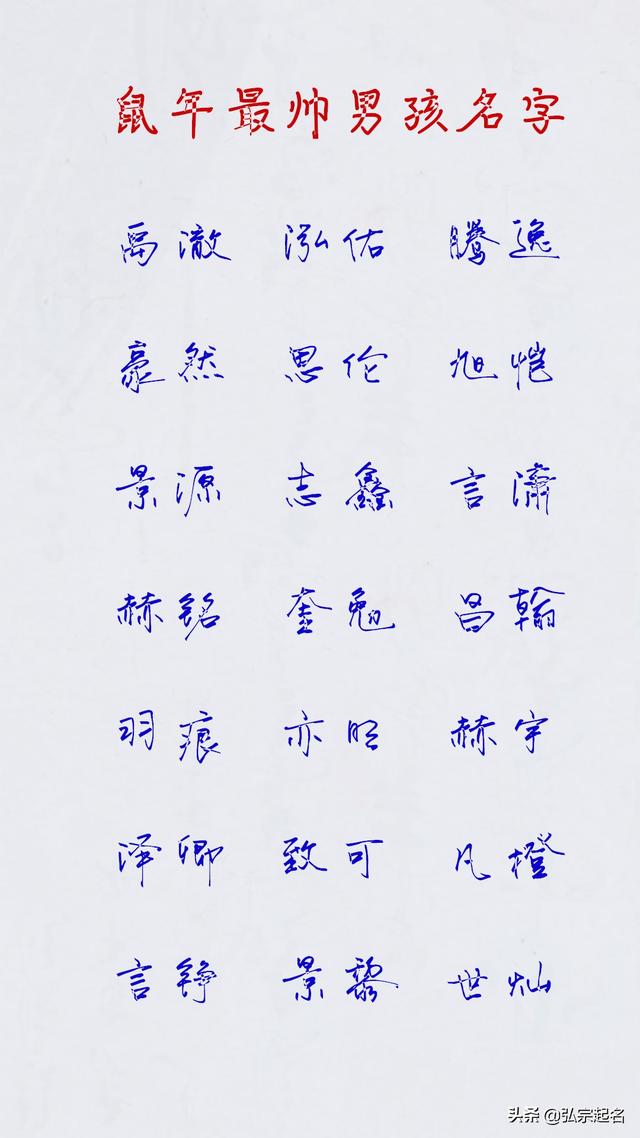 鼠年最帅男孩名字
禹澈 泓佑 腾逸
豪然 思伦 旭恺
景源 志鑫 言济
赫铭 奎勉 昌翰
羽痕 亦明 赫宇
泽卿 致可 凡橙
言铮 景黎 世灿
头条 @弘宗起名